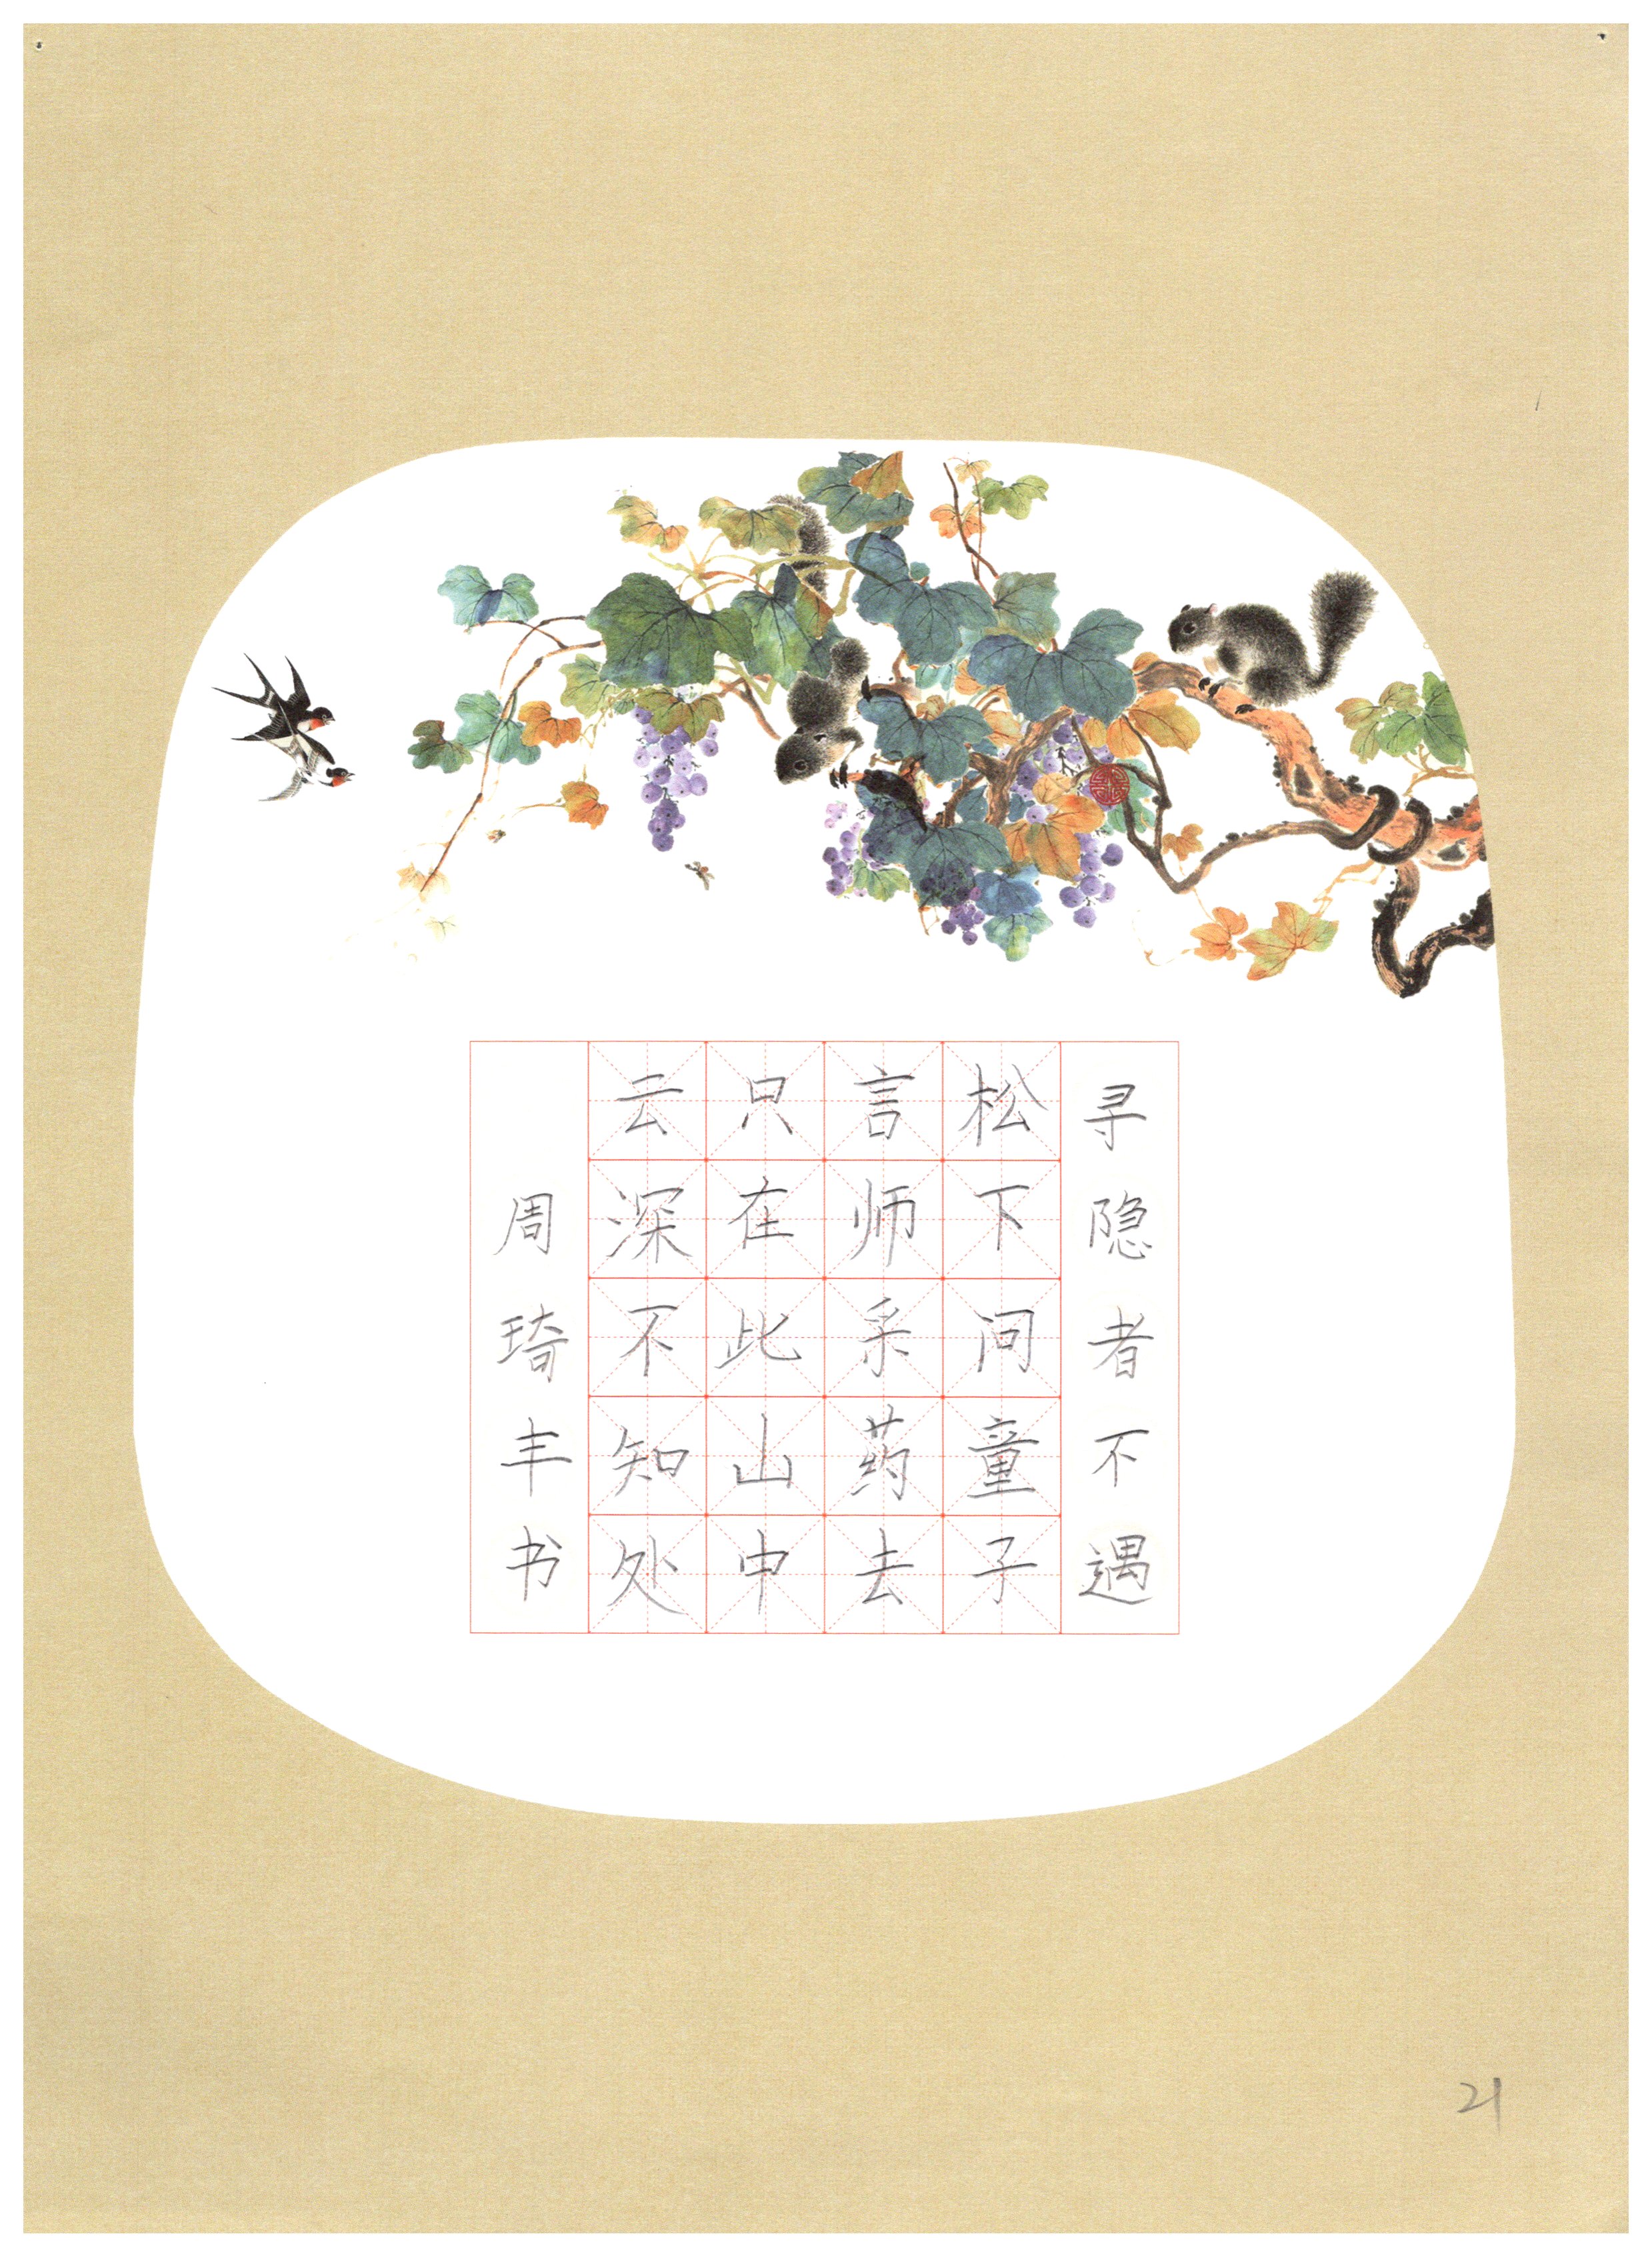 寻隐者不遇
松下问童子
言师采药去
只在此山中
云深不知处
周琦丰书
21